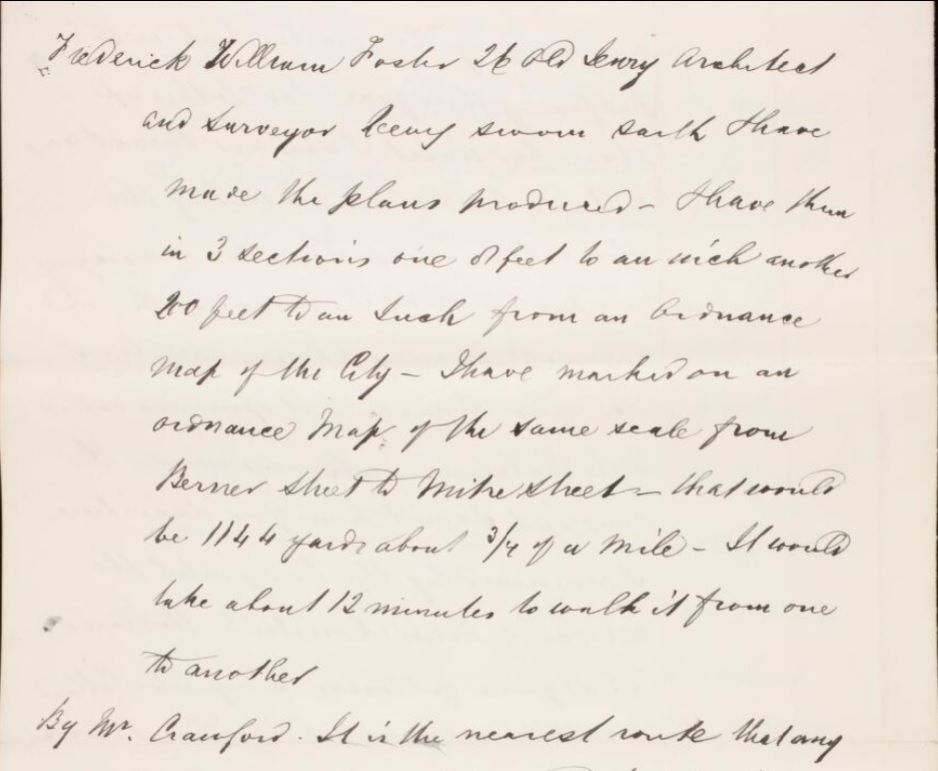 Frederick William Foster 26 Old Jewry Architect
and surveyor being sworn saith I have
made the plans produced - I have them
in 3 sections one 8 feet to an inch another
200 feet to an inch from an Ordnance
Map of the City - I have marked on an
ordnance Map of the same scale from
Berner street to Mitre street - that would
be 1144 yards about 3/4 of a mile - It would
take about 12 minutes to walk it from one
to another
By Mr. Crawford. It is the nearest route that any